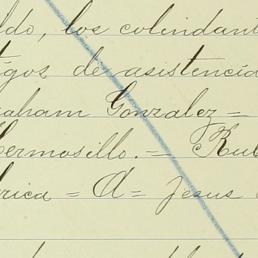 ldo, los colindant
tigos de asistencia
raham Gonzalez =
Hermosillo. = Rub
brica = A = Jesus